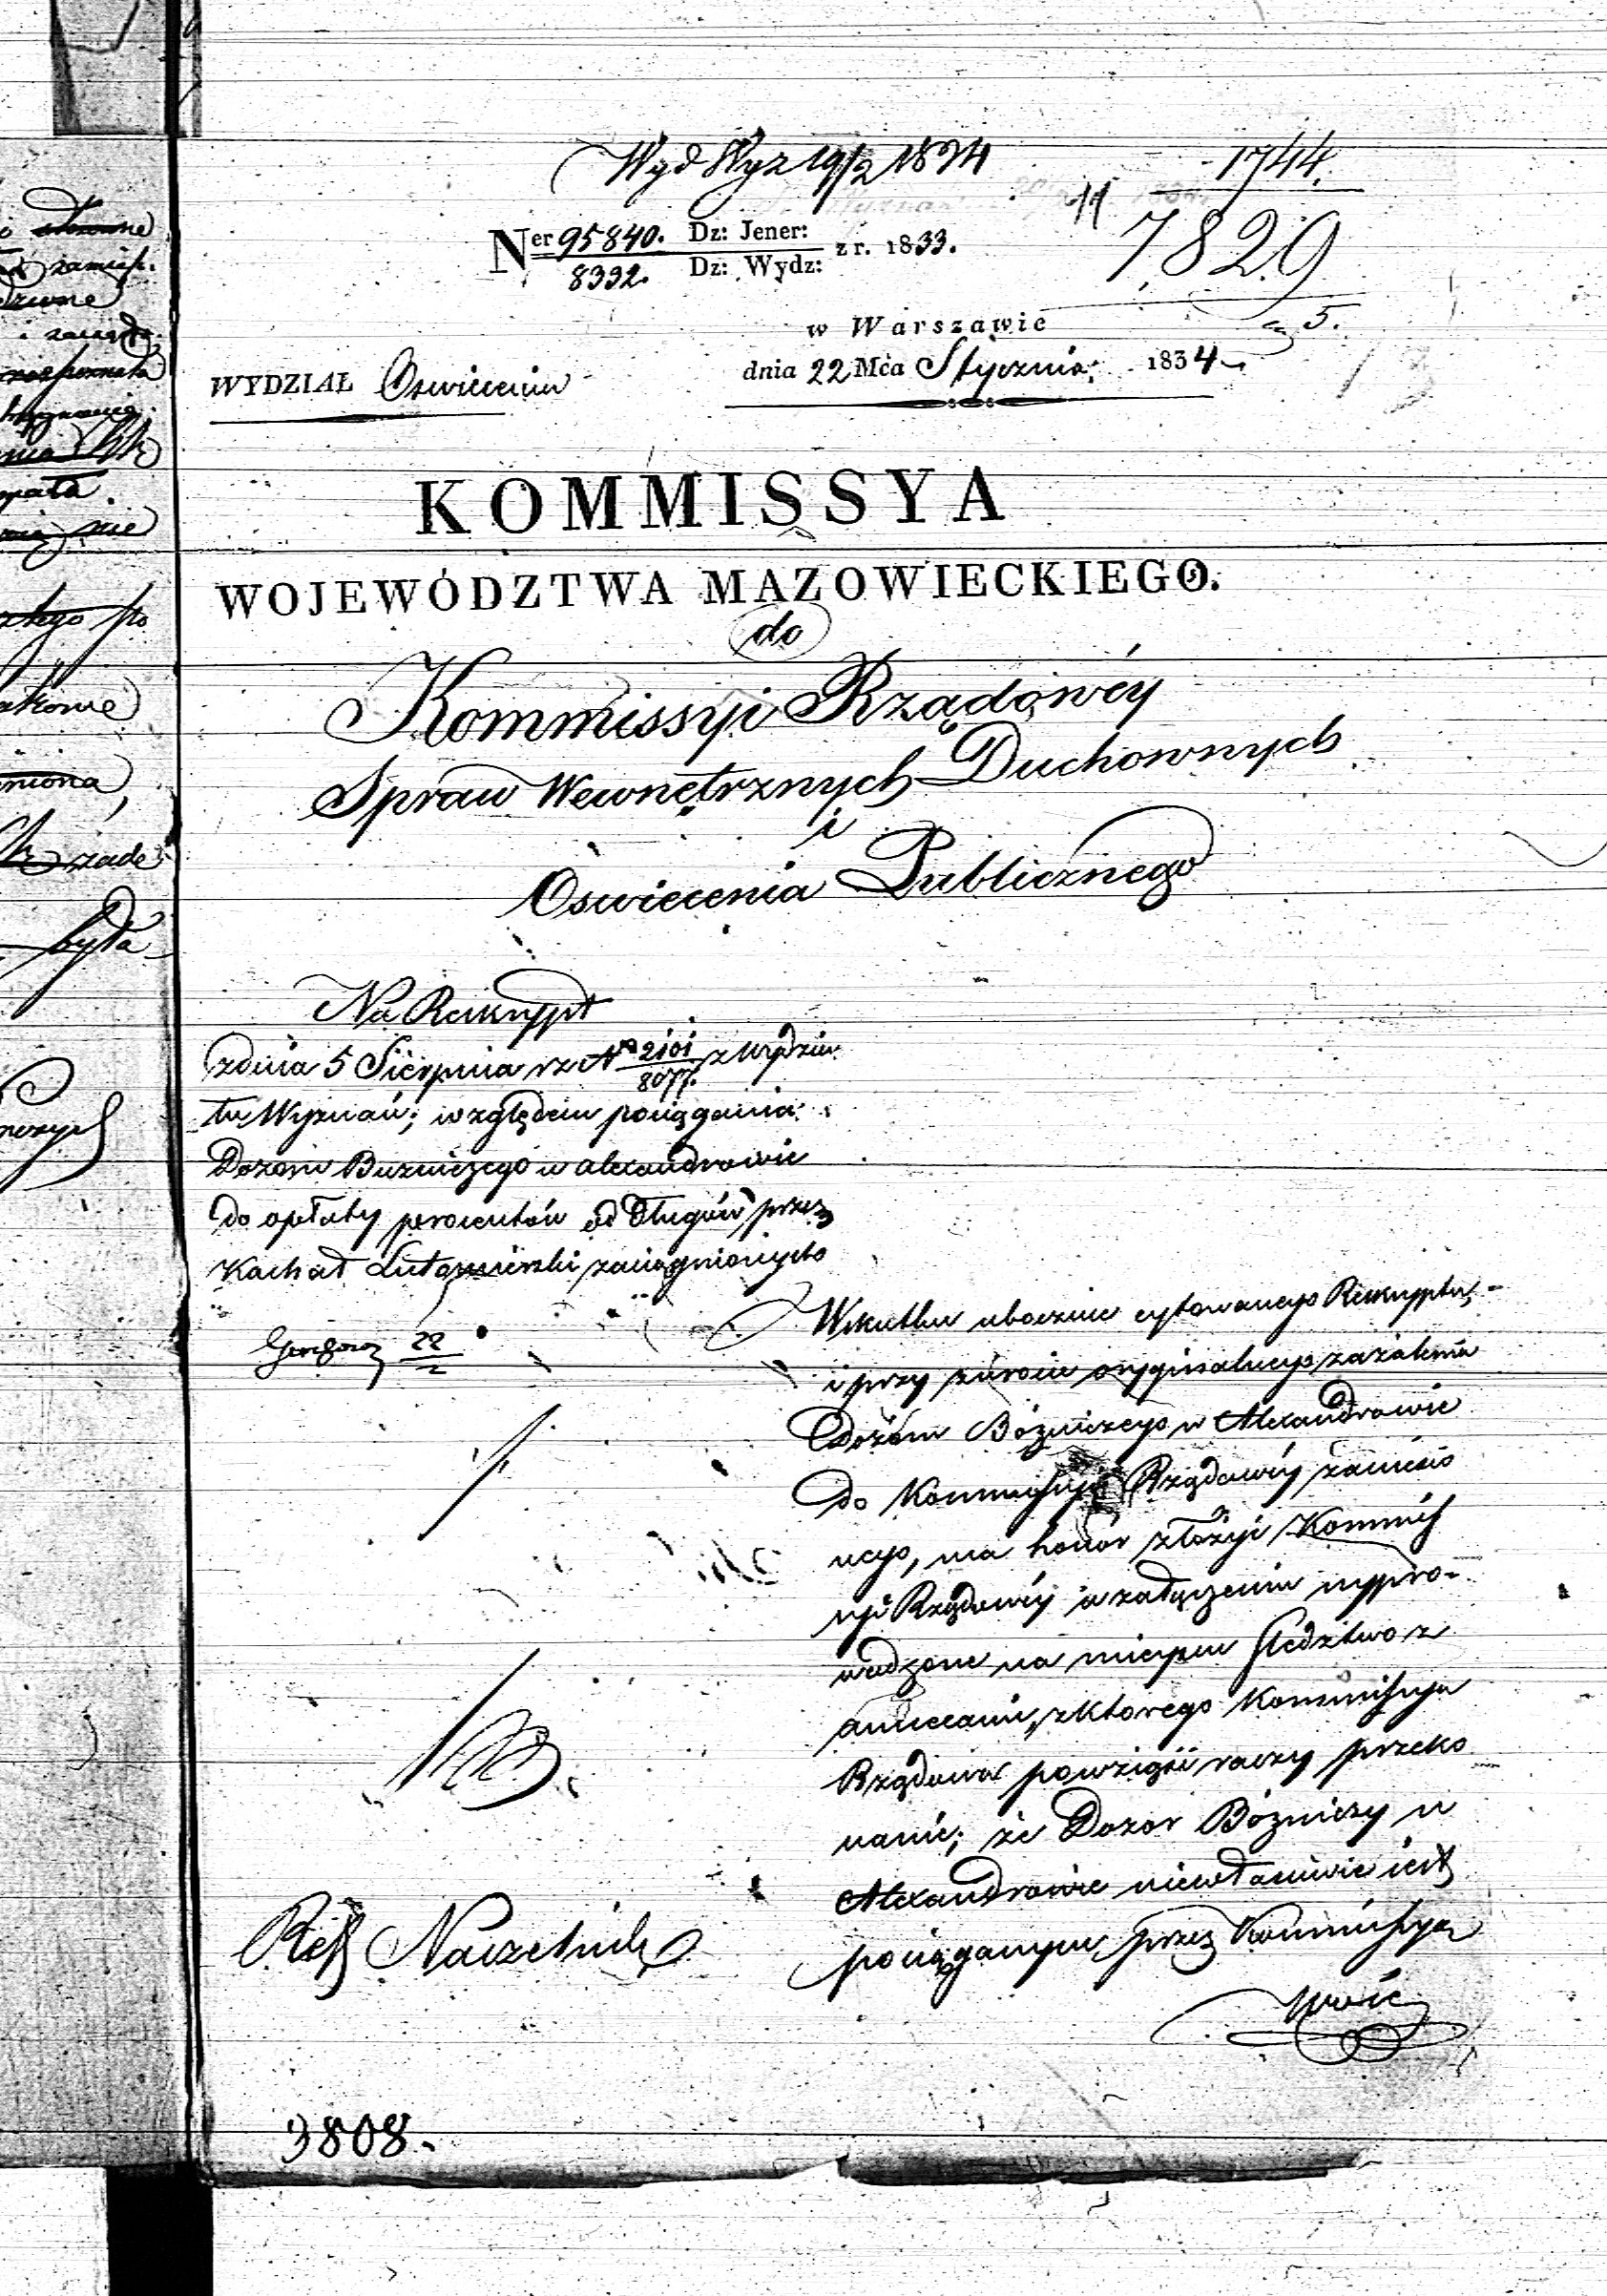 Wyd Wyz 19/2 1834
1744.
11
7829
Ner 95840. Dz: Jener: z r. 1833.
8392. Dz: Wydz:
w Warszawie
5.
dnia 22 Mca Stycznia 1834
WYDZIAŁ Oswiecenia
13
KOMMISSYA
WOJEWÓDZTWA MAZOWIECKIEGO.
do
Kommissyi Rządowéy
Spraw Wewnętrznych Duchownych
i
Oswiecenia Publicznego
Na Reskrypt
z dnia 5 Sierpnia r z No 2101/8077. z Wydzia
łu Wyznań; względem pociągania
Dozoru Buzniczego w Alexandrowie
do opłaty procentów od Długów przez
Kachał Lutomierski zaciągnionych
22
W skutku ubocznie cytowanego Reskryptu,
i przy zwrocie oryginalnego zażalenia
Dozoru Bóżniczego w Alexandrowie
do Kommissyi Rządowéy zaniesio
nego, ma honor złożyć Kommis
syi Rządowéy w załączeniu wypro-
wadzone na mieyscu śledztwo z
annexami, z ktorego Kommissya
Rządowa powziąść raczy przeko
nanie; że Dozor Bóżniczy w
Alexandrowie niewłaściwie iest
pociąganym przez Kommissyą
Woie
Ref Naczelnik
3808.